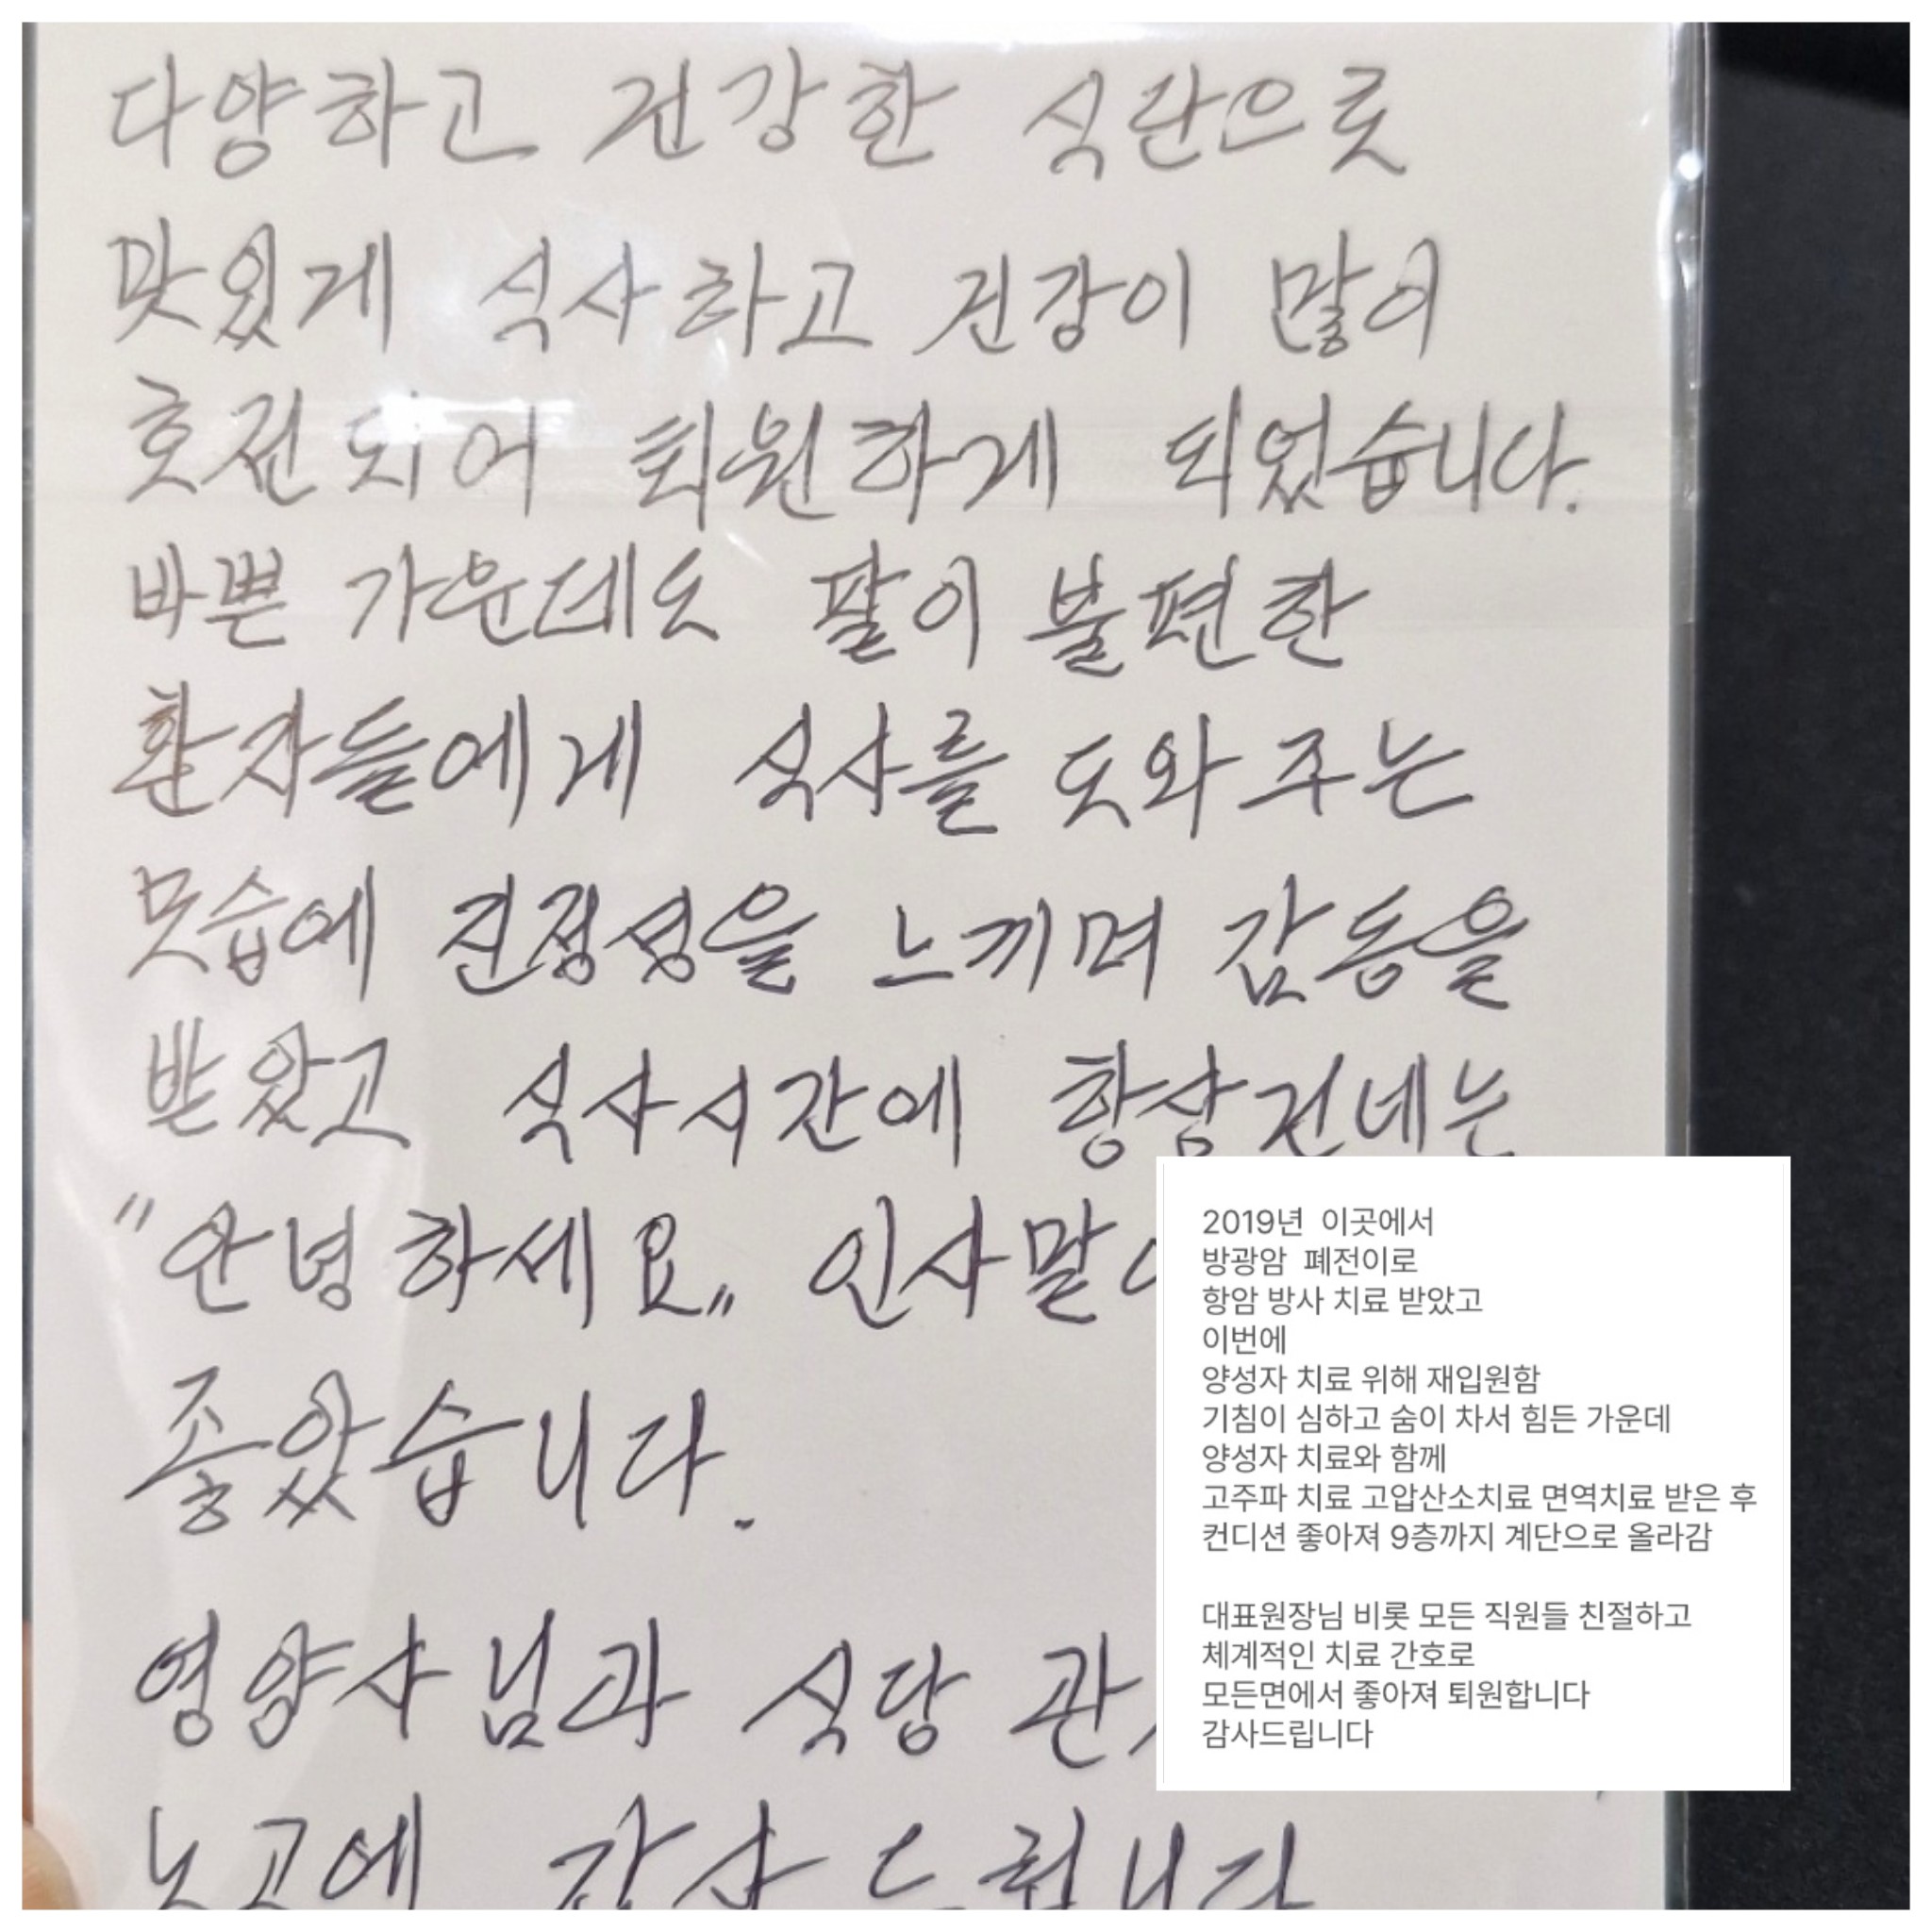 다양하고 건강한 식단으로
맛있게 식사하고 건강이 많이
호전되어 퇴원하게 되었습니다.
바쁜 가운데도 팔이 불편한
환자들에게 식사를 도와주는
모습에 진정성을 느끼며 감동을
받았고 식사시간에 항상 건네는
"안녕하세요" 인사말
좋았습니다.
영양사님과 식당
노고에 감사드립니다
2019년 이곳에서
방광암 폐전이로
항암 방사 치료 받았고
이번에
양성자 치료 위해 재입원함
기침이 심하고 숨이 차서 힘든 가운데
양성자 치료와 함께
고주파 치료 고압산소치료 면역치료 받은 후
컨디션 좋아져 9층까지 계단으로 올라감
대표원장님 비롯 모든 직원들 친절하고
체계적인 치료 간호로
모든면에서 좋아져 퇴원합니다
감사드립니다